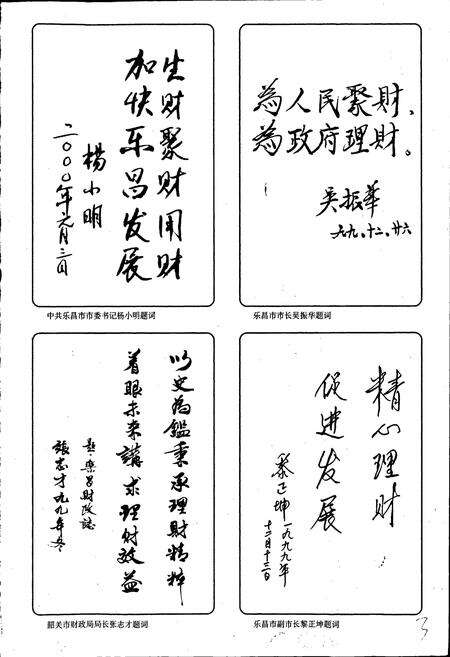 生财聚财用财
加快乐昌发展
杨小明
二〇〇〇年元月三日
中共乐昌市市委书记杨小明题词
為人民聚財、
為政府理財。
吴振華
九九、十二、廿六
乐昌市市长吴振华题词
以史為鑑秉承理財精粹
着眼未来講求理财效益
題·樂昌財政誌
張志才九九年冬
韶关市财政局局长张志才题词
精心理財
促进发展
黎正坤一九九九年
十二月十三日
乐昌市副市长黎正坤题词
3